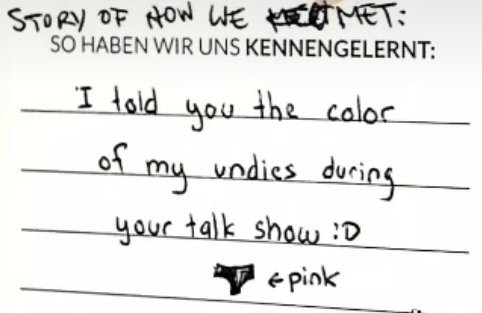 STORY OF HOW WE MET:
SO HABEN WIR UNS KENNENGELERNT:
I told you the color
of my undies during
your talk show :D
← pink